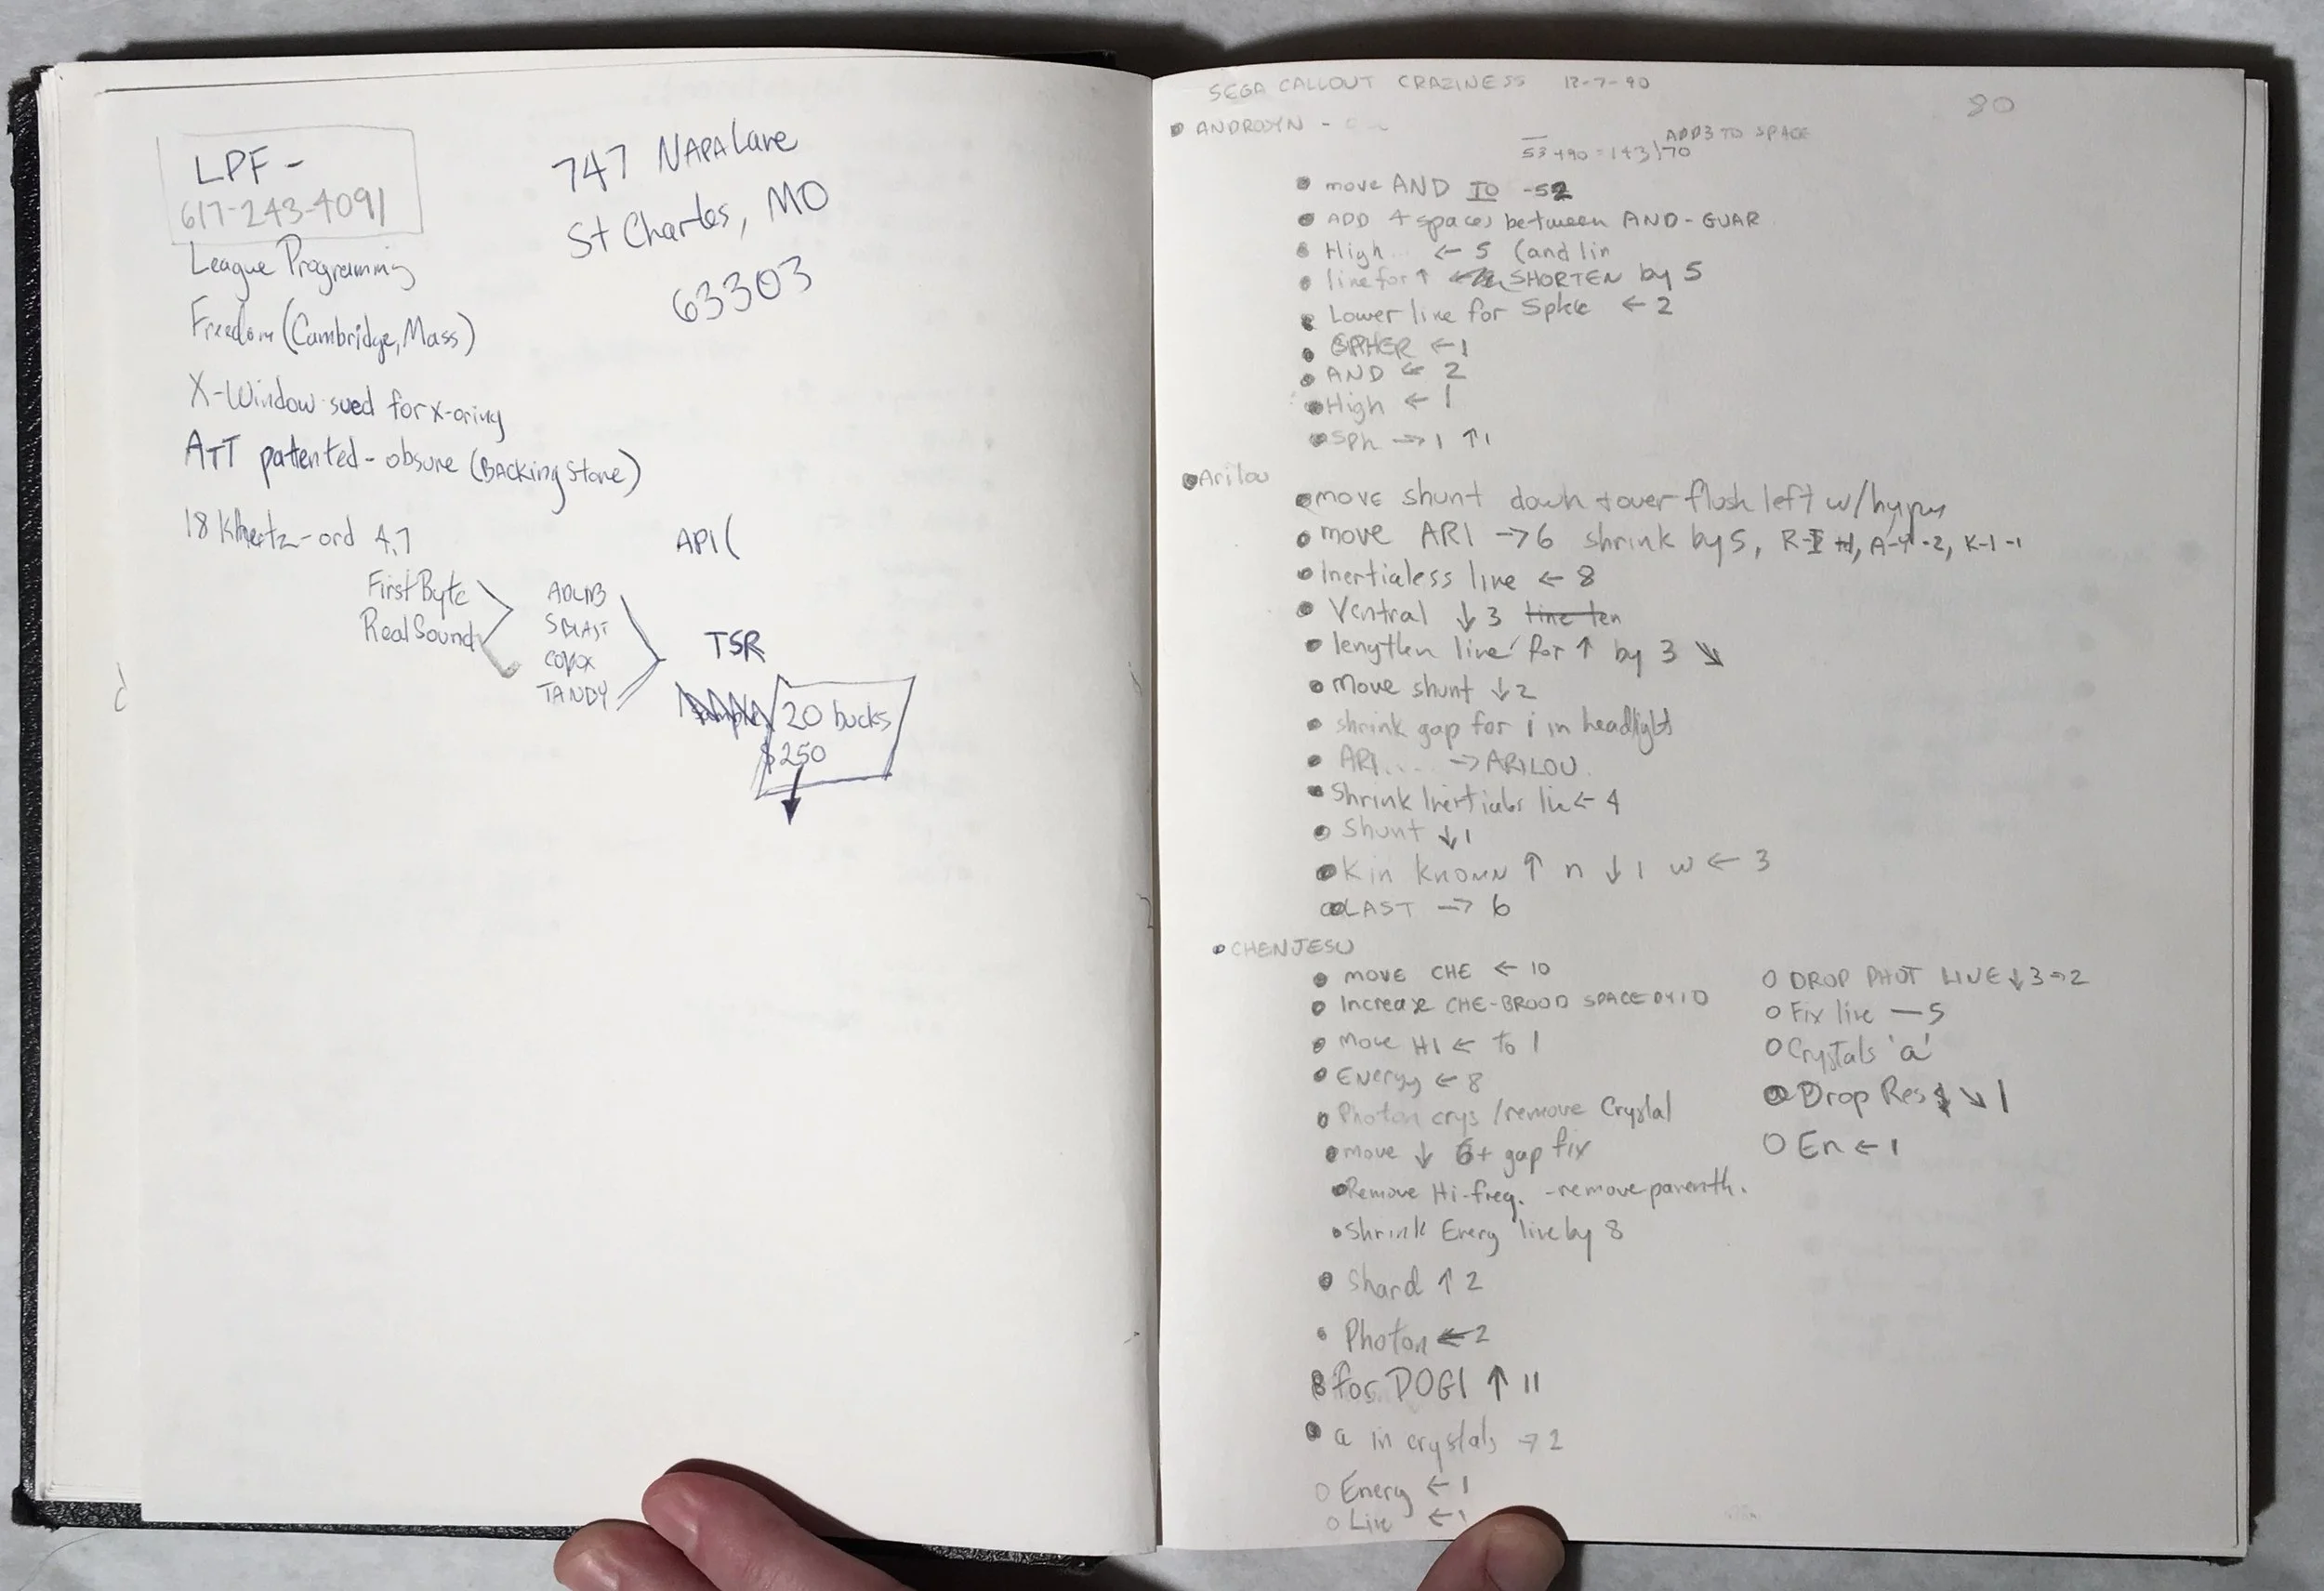 LPF -
617-243-4091
League Programming
Freedom (Cambridge, Mass)
X-Window sued for x-oring
ATT patented - obsure (BACKING Store)
18 Khertz - ord 4.7
747 NAPA Lane
St Charles, MO
63303
API (
First Byte
Real Sound
ADLIB
SBLAST
COVOX
TANDY
TSR
20 bucks
$250
SEGA CALLOUT CRAZINESS 12-7-90
80
ANDROSYN -
ADD 3 TO SPACE
53+90 = 143 170
move AND TO -52
ADD 4 spaces between AND-GUAR
High ← 5 (and lin
line for ↑ SHORTEN by 5
Lower line for ← 2
← 1
AND ← 2
High ← 1
Sph → 1 ↑ 1
Arilou
move shunt down + over flush left w/
move ARI → 6 shrink by 5,
Inertialess line ← 8
Ventral ↓ 3
lengthen line for ↑ by 3 ↘
Move shunt ↓ 2
shrink gap for i in headlight
ARI.... → ARILOU
Shrink ← 4
Shunt ↓ 1
K in KNOWN ↑ n ↓ 1 w ← 3
LAST → 6
CHENJESU
move CHE ← 10
Increase CHE-BROOD SPACE BY 10
Move HI ← to 1
Energy ← 8
Photon crys / remove Crystal
move ↓ 6 + gap fix
Remove Hi-freq. - remove parenth.
Shrink Energy line by 8
Shard ↑ 2
Photon ← 2
for DOGI ↑ 11
a in crystals → 2
Energy ← 1
Line ← 1
DROP PHOT LINE ↓ 3 → 2
Fix line — 5
Crystals 'a'
Drop Res ↘ 1
En ← 1